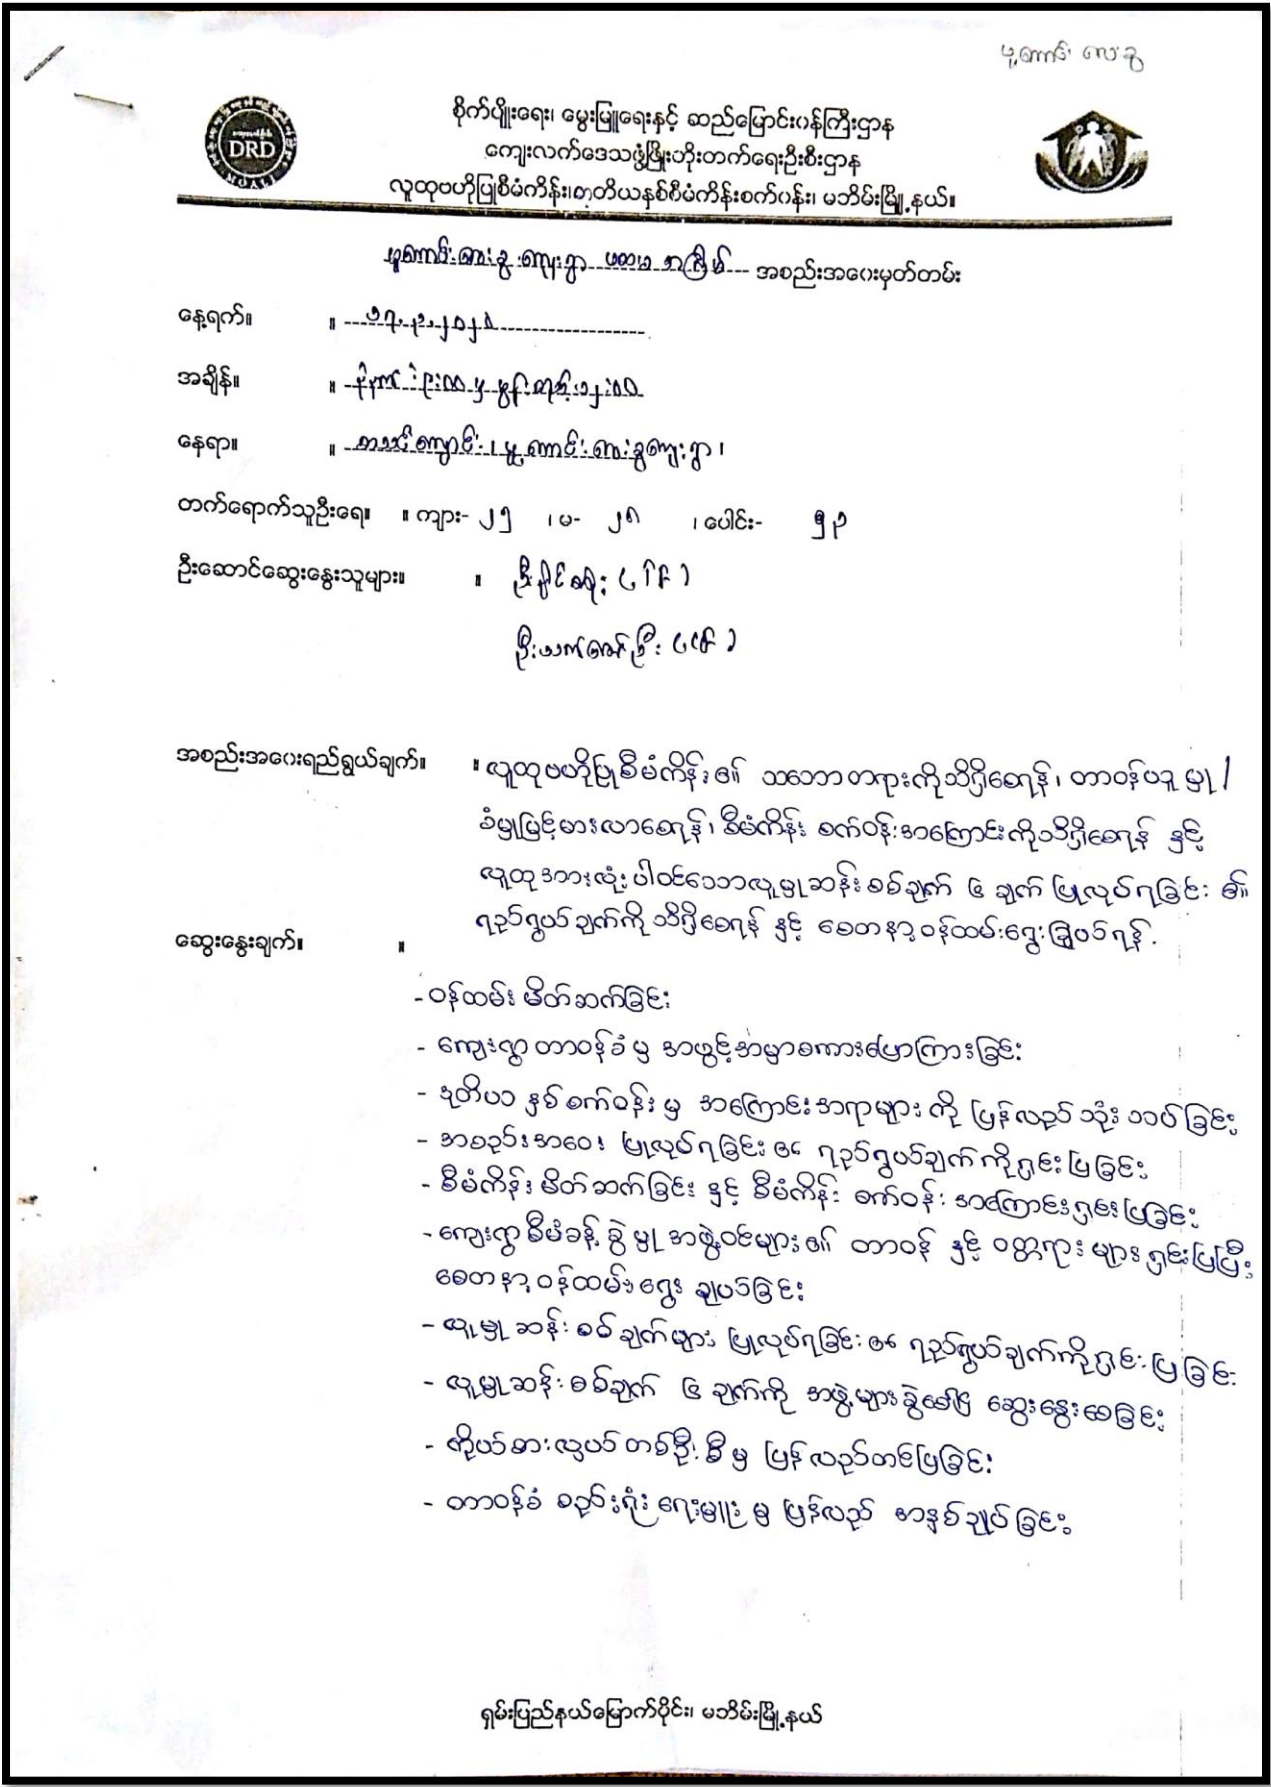 စိုက်ပျိုးရေး၊ မွေးမြူရေးနှင့် ဆည်မြောင်းဝန်ကြီးဌာန
DRD
MOALI
ကျေးလက်ဒေသဖွံ့ဖြိုးတိုးတက်ရေးဦးစီးဌာန
လူထုဗဟိုပြုစီမံကိန်း၊တတိယနှစ်စီမံကိန်းစက်ဝန်း၊ မဘိမ်းမြို့နယ်။
ကျေးရွာ ပထမ အကြိမ် အစည်းအဝေးမှတ်တမ်း
နေ့ရက်။ ။
အချိန်။ ။ နံနက် ၉:၀၀ မှ မွန်းတည့် ၁၂:၀၀
နေရာ။ ။ စာသင်ကျောင်း၊
တက်ရောက်သူဦးရေ။ ။ ကျား- ၂၅ ၊ မ- ၂၈ ၊ ပေါင်း- ၅၃
ဦးဆောင်ဆွေးနွေးသူများ။ ။
အစည်းအဝေးရည်ရွယ်ချက်။ ။ လူထုဗဟိုပြုစီမံကိန်း၏ သဘောတရားကိုသိရှိစေရန်၊ တာဝန်ယူမှု/
ခံမှုမြင့်မားလာစေရန်၊ စီမံကိန်း စက်ဝန်းအကြောင်းကိုသိရှိစေရန် နှင့်
လူထုအားလုံးပါဝင်သောလူမှုဆန်းစစ်ချက် ၄ ချက် ပြုလုပ်ရခြင်း ၏
ရည်ရွယ်ချက်ကိုသိရှိစေရန် နှင့် စေတနာ့ဝန်ထမ်းရွေးချယ်ရန်.
ဆွေးနွေးချက်။ ။
- ဝန်ထမ်းမိတ်ဆက်ခြင်း
- ကျေးရွာတာဝန်ခံမှ အဖွင့်အမှာစကားပြောကြားခြင်း
- ဒုတိယ နှစ်စက်ဝန်းမှ အကြောင်းအရာများကို ပြန်လည်သုံးသပ်ခြင်း
- အစည်းအဝေး ပြုလုပ်ရခြင်း၏ ရည်ရွယ်ချက်ကိုရှင်းပြခြင်း
- စီမံကိန်းမိတ်ဆက်ခြင်း နှင့် စီမံကိန်း စက်ဝန်းအကြောင်းရှင်းပြခြင်း
- ကျေးရွာစီမံခန့်ခွဲမှုအဖွဲ့ဝင်များ၏ တာဝန် နှင့် ဝတ္တရားများရှင်းပြပြီး
စေတနာ့ဝန်ထမ်းရွေးချယ်ခြင်း
- လူမှုဆန်းစစ်ချက်များ ပြုလုပ်ရခြင်း၏ ရည်ရွယ်ချက်ကိုရှင်းပြခြင်း
- လူမှုဆန်းစစ်ချက် ၄ ချက်ကို အဖွဲ့များခွဲ၍ ဆွေးနွေးစေခြင်း
- ကိုယ်စားလှယ်တစ်ဦးစီမှ ပြန်လည်တင်ပြခြင်း
- တာဝန်ခံ စည်းရုံးရေးမှူးမှ ပြန်လည် အနှစ်ချုပ်ခြင်း
ရှမ်းပြည်နယ်မြောက်ပိုင်း၊ မဘိမ်းမြို့နယ်